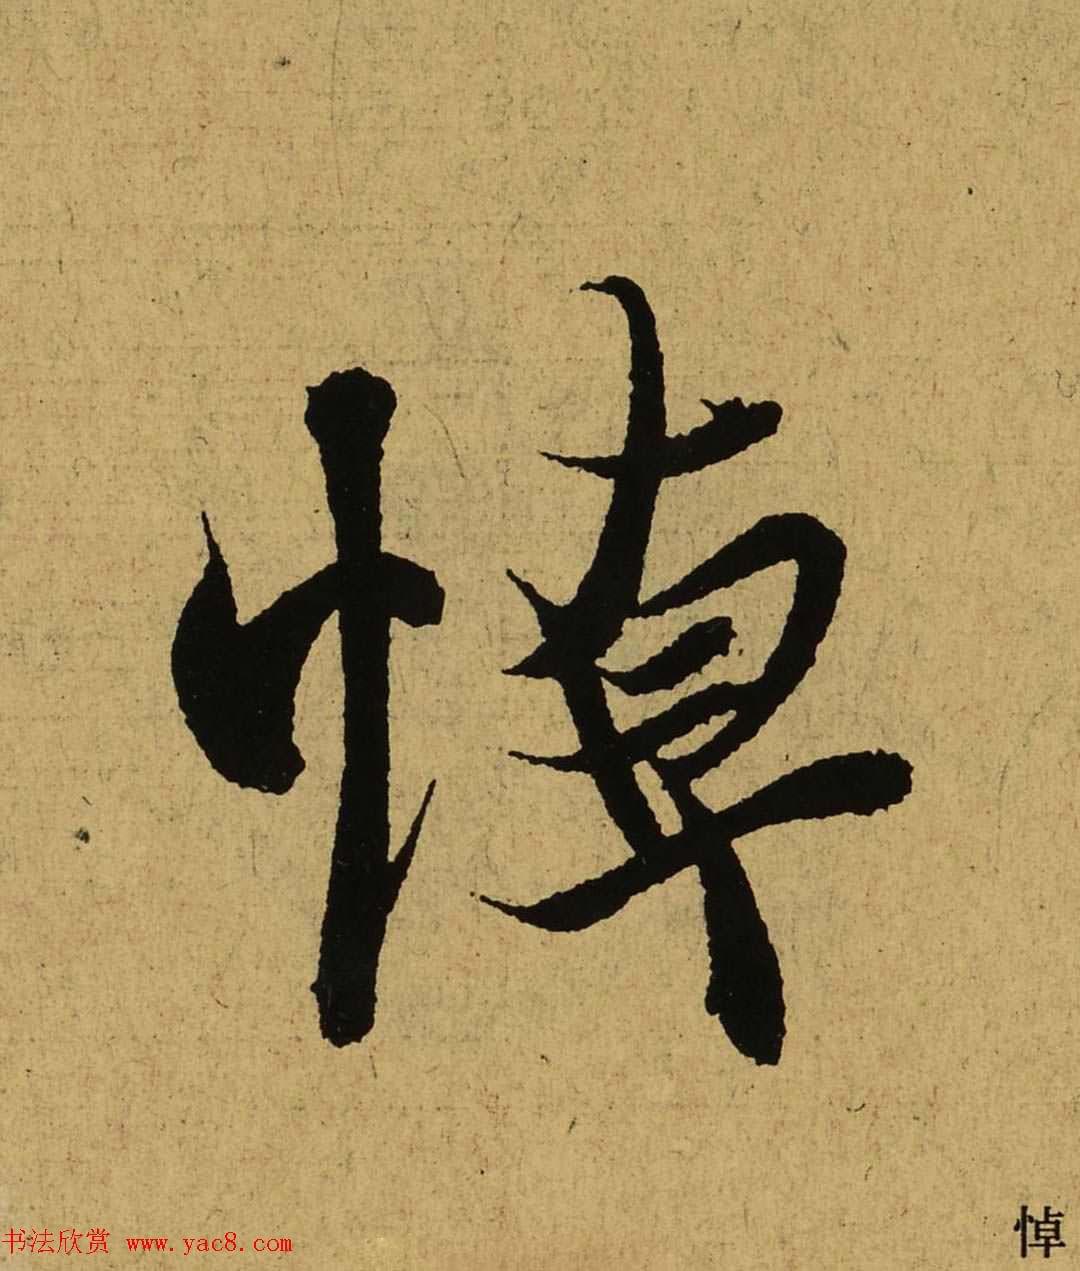 悼
书法欣赏 www.yac8.com
悼